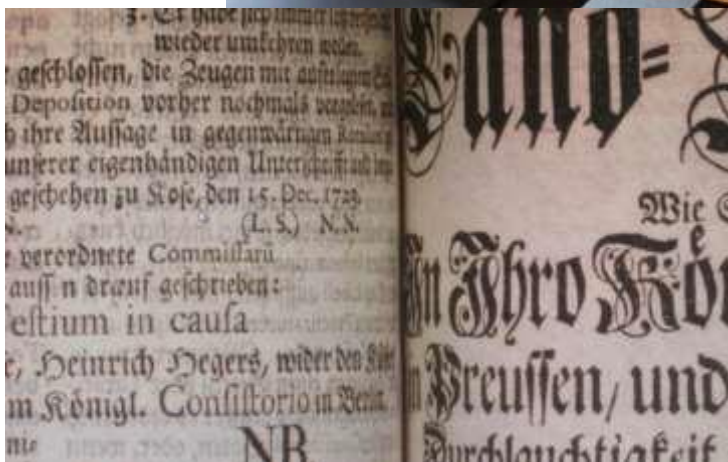 3. Er habe sich immer
wieder umkehren
geschlossen, die Zeugen mit
Deposition vorher nochmals
ihre Aussage in gegenwärtigen
unserer eigenhändigen Unterschrifft und
geschehen zu Kose, den 15. Dec. 1723.
N. (L. S.) N. N.
verordnete Commissarii
auss n drauf geschrieben:
estium in causa
Heinrich Hegers, wider den
m Königl. Consistorio in
nie
NB
Land=
Wie
In Ihro Kö
in Preussen, und
Durchlauchtigkeit